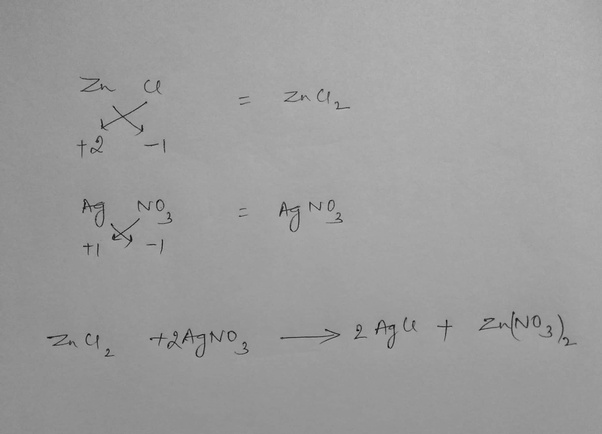 Zn Cl = ZnCl₂
+2 -1
Ag NO₃ = AgNO₃
+1 -1
ZnCl₂ +2AgNO₃ → 2 AgCl + Zn(NO₃)₂